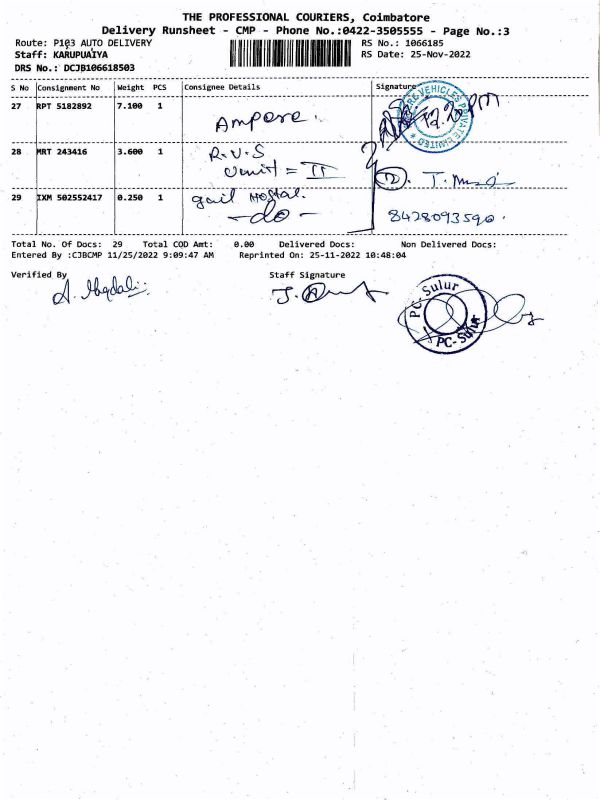 THE PROFESSIONAL COURIERS, Coimbatore
Delivery Runsheet - CMP - Phone No.:0422-3505555 - Page No.:3
Route: P103 AUTO DELIVERY RS No.: 1066185
Staff: KARUPUAIYA RS Date: 25-Nov-2022
DRS No.: DCJB106618503
S No Consignment No Weight PCS Consignee Details Signature
27 RPT 5182892 7.100 1 Ampere. VEHICLES PRIVATE LIMITED PM
28 MRT 243416 3.600 1 R.V.S
Unit = II
29 IXM 502552417 0.250 1 gail Hostal.
- do - 8428093590.
Total No. Of Docs: 29 Total COD Amt: 0.00 Delivered Docs: Non Delivered Docs:
Entered By :CJBCMP 11/25/2022 9:09:47 AM Reprinted On: 25-11-2022 10:48:04
Verified By Staff Signature
PC-Sulur
PC-Sulur